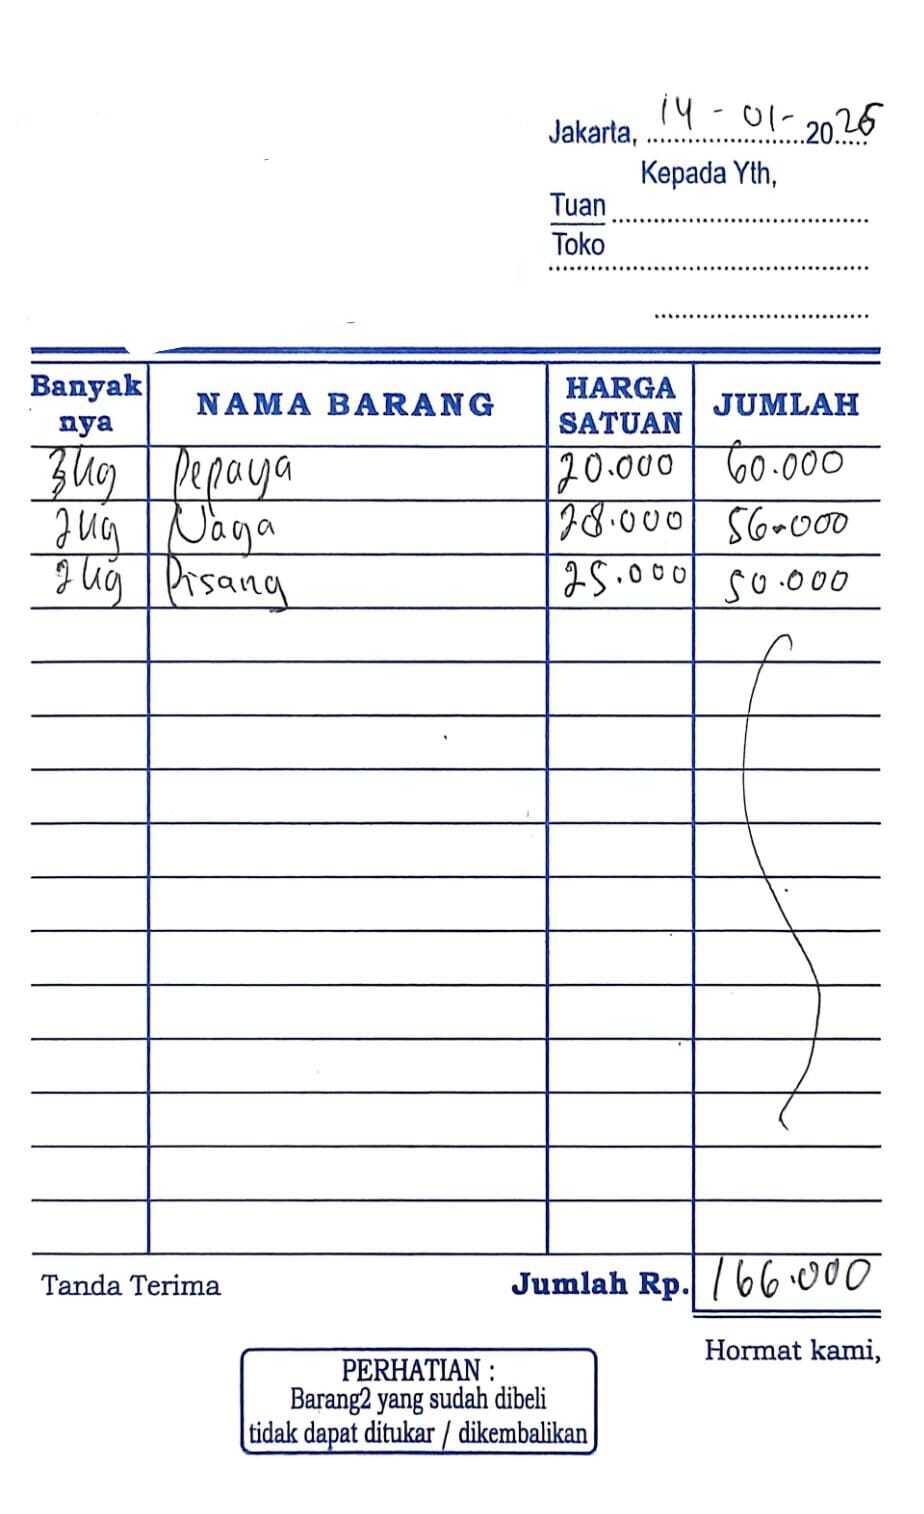 Jakarta, 14 - 01 - 2026
Kepada Yth,
Tuan
Toko
Banyak nya NAMA BARANG HARGA SATUAN JUMLAH
3 kg Pepaya 20.000 60.000
2 kg Naga 28.000 56.000
2 kg Pisang 25.000 50.000
Tanda Terima Jumlah Rp. 166.000
Hormat kami,
PERHATIAN :
Barang2 yang sudah dibeli
tidak dapat ditukar / dikembalikan